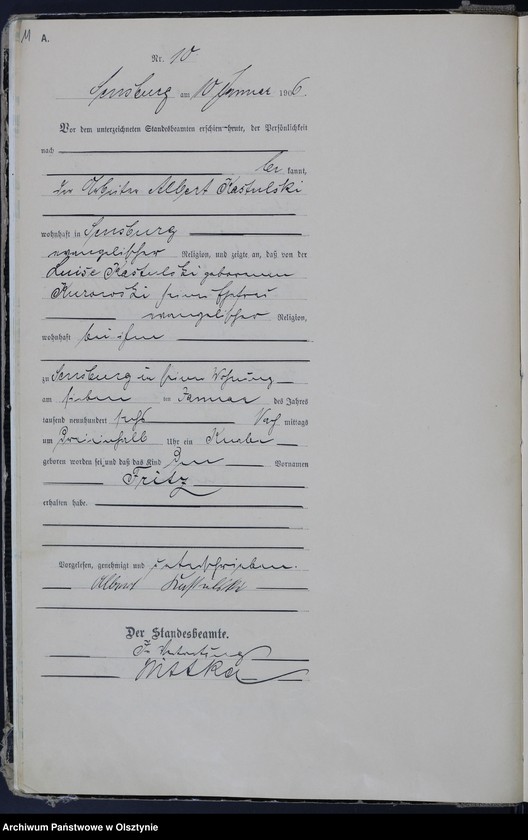 11
A.
Nr. 10
Sensburg am 10 Januar 1906.
Vor dem unterzeichneten Standesbeamten erschien heute, der Persönlichkeit
nach
be kannt,
der Arbeiter Albert Kastulski
wohnhaft in Sensburg
evangelischer Religion, und zeigte an, daß von der
Luise Kastulski geborenen
Kurowski seiner Ehefrau
evangelischer Religion,
wohnhaft bei ihm
zu Sensburg in seiner Wohnung
am sieben im Januar des Jahres
tausend neunhundert sechs Nach mittags
um Dreieinhalb Uhr ein Knabe
geboren worden sei und daß das Kind den Vornamen
Fritz
erhalten habe.
Vorgelesen, genehmigt und unterschrieben.
Albert Kastulski
Der Standesbeamte.
In Vertretung
Archiwum Państwowe w Olsztynie